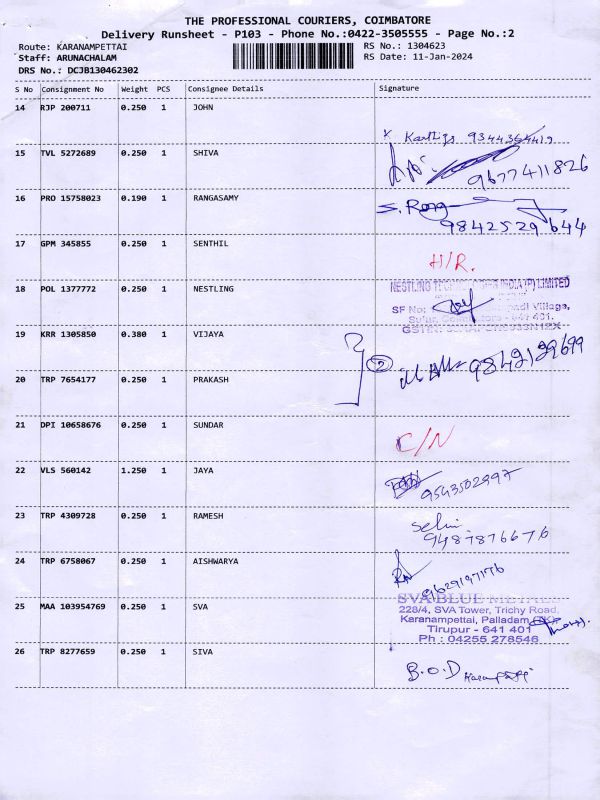 THE PROFESSIONAL COURIERS, COIMBATORE
Delivery Runsheet - P103 - Phone No.:0422-3505555 - Page No.:2
Route: KARANAMPETTAI RS No.: 1304623
Staff: ARUNACHALAM RS Date: 11-Jan-2024
DRS No.: DCJB130462302
S No Consignment No Weight PCS Consignee Details Signature
14 RJP 200711 0.250 1 JOHN
9344364419
15 TVL 5272689 0.250 1 SHIVA
9677411826
16 PRO 15758023 0.190 1 RANGASAMY S. Rang
9842529644
17 GPM 345855 0.250 1 SENTHIL
H/R.
18 POL 1377772 0.250 1 NESTLING NESTLING (P) LIMITED
SF No: Village,
641 401.
19 KRR 1305850 0.380 1 VIJAYA
2 9842129699
20 TRP 7654177 0.250 1 PRAKASH
21 DPI 10658676 0.250 1 SUNDAR
C/N
22 VLS 560142 1.250 1 JAYA
9543502997
23 TRP 4309728 0.250 1 RAMESH
9487876676
24 TRP 6758067 0.250 1 AISHWARYA
9629197176
25 MAA 103954769 0.250 1 SVA SVA BLUE METALS
228/4, SVA Tower, Trichy Road,
Karanampettai, Palladam
Tirupur - 641 401
Ph : 04255 278546
26 TRP 8277659 0.250 1 SIVA
B.O.D